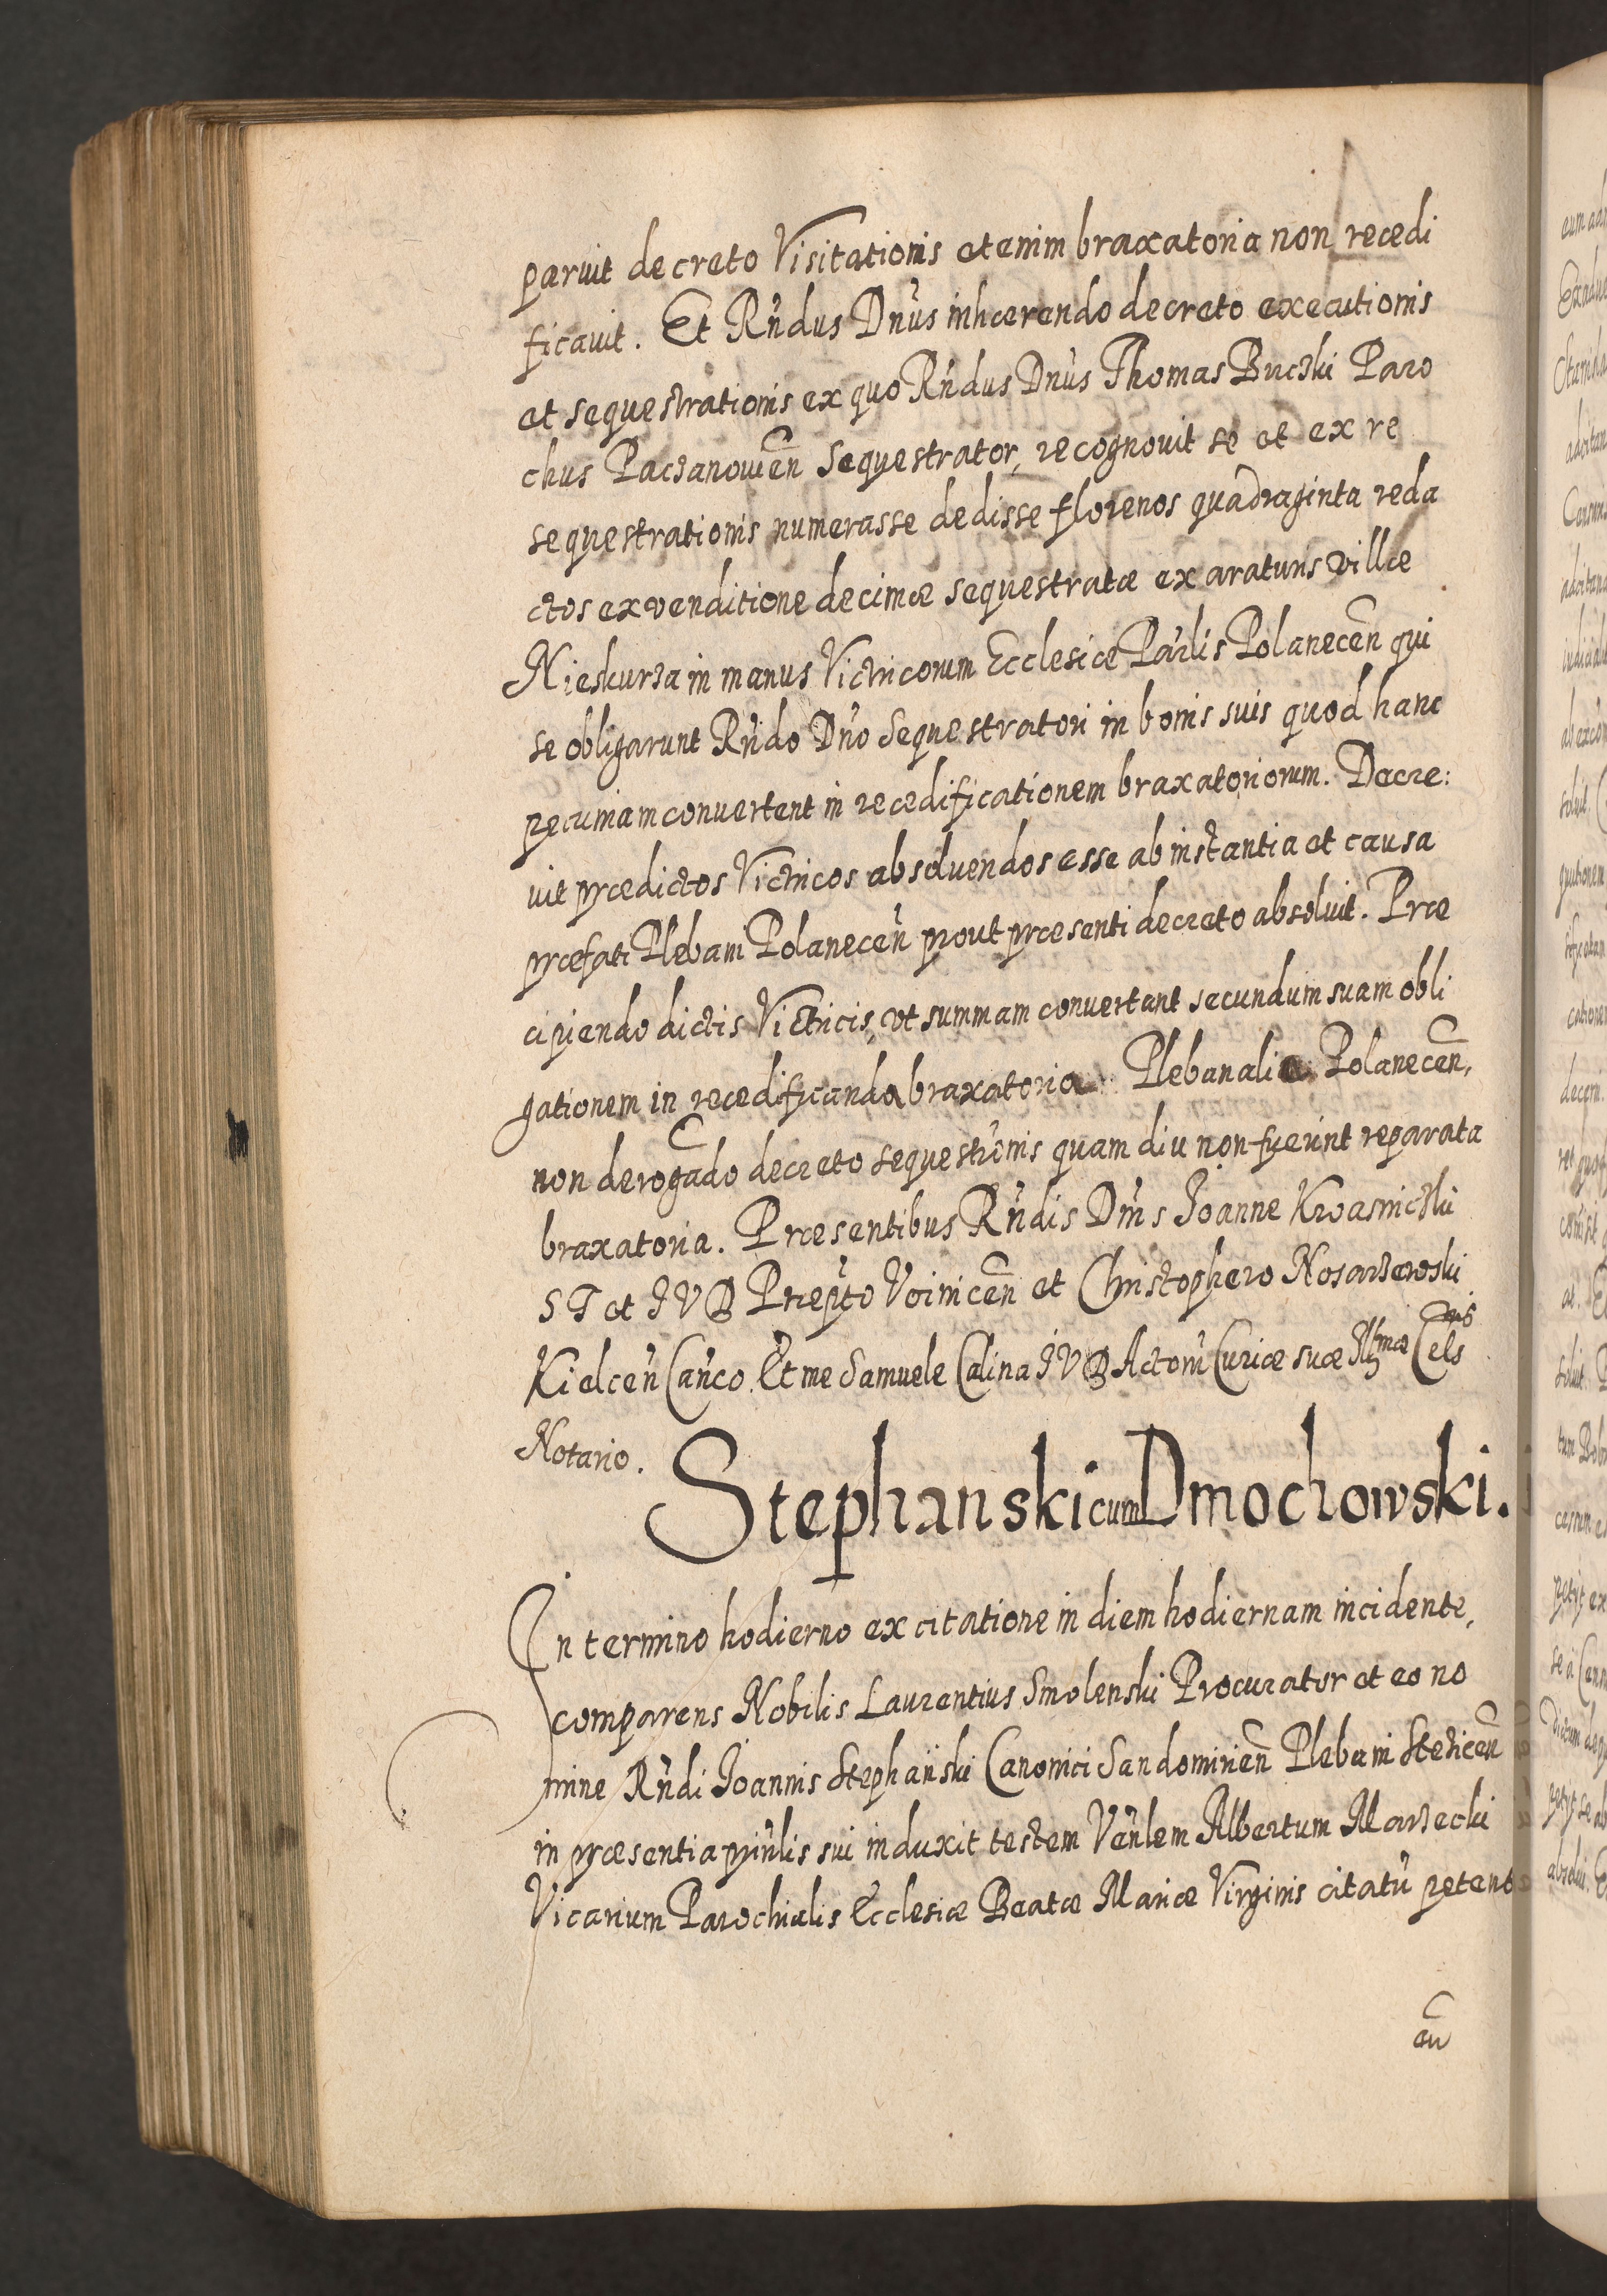 paruit decreto Visitationis etenim braxatoria non reædi
ficauit. Et Rndus Dnus inhærendo decreto executionis
et sequestrationis ex quo Rndus Dnus Thomas Buczki Paro
chus Paczanowen Sequestrator, recognouit se et ex re
sequestrationis numerasse dedisse florenos quadraginta reda
ctos ex venditione decimæ sequestratæ ex araturis villæ
Nieskurza in manus Victricorum Ecclesiæ Parlis Polanecen qui
se obligarunt Rndo Dno Sequestratori in bonis suis quod hanc
pecuniam conuertent in reædificationem braxatoriorum. Decre:
uit prædictos Victricos absoluendos esse ab instantia et causa
præfati Plebani Polanecen prout præsenti decreto absoluit. Præ
cipiendo dictis Victricis, vt summam conuertant secundum suam obli
gationem in reædificanda braxatoria Plebanalia Polanecen,
non derogãdo decreto sequestronis quam diu non fuerint reparata
braxatoria. Præsentibus Rndis Dnis Joanne Kwasniczki
S T et J V D Præpto Voinicen et Christophero Nosarzewski
Kielcen Canco. Et me Samuele Calina J V D Actorũ Curiæ suæ Illmæ Celsnis
Notario.
Stephanski cum Dmochowski.
In termino hodierno ex citatione in diem hodiernam incidente,
comparens Nobilis Laurentius Smolenski Procurator et eo no
mine Rndi Joannis Stephański Canonici Sandomirien Plebani
in præsentia prinlis sui induxit testem Venlem Albertum Marzecki
Vicarium Parochialis Ecclesiæ Beatæ Mariæ Virginis citatũ petent
eũ